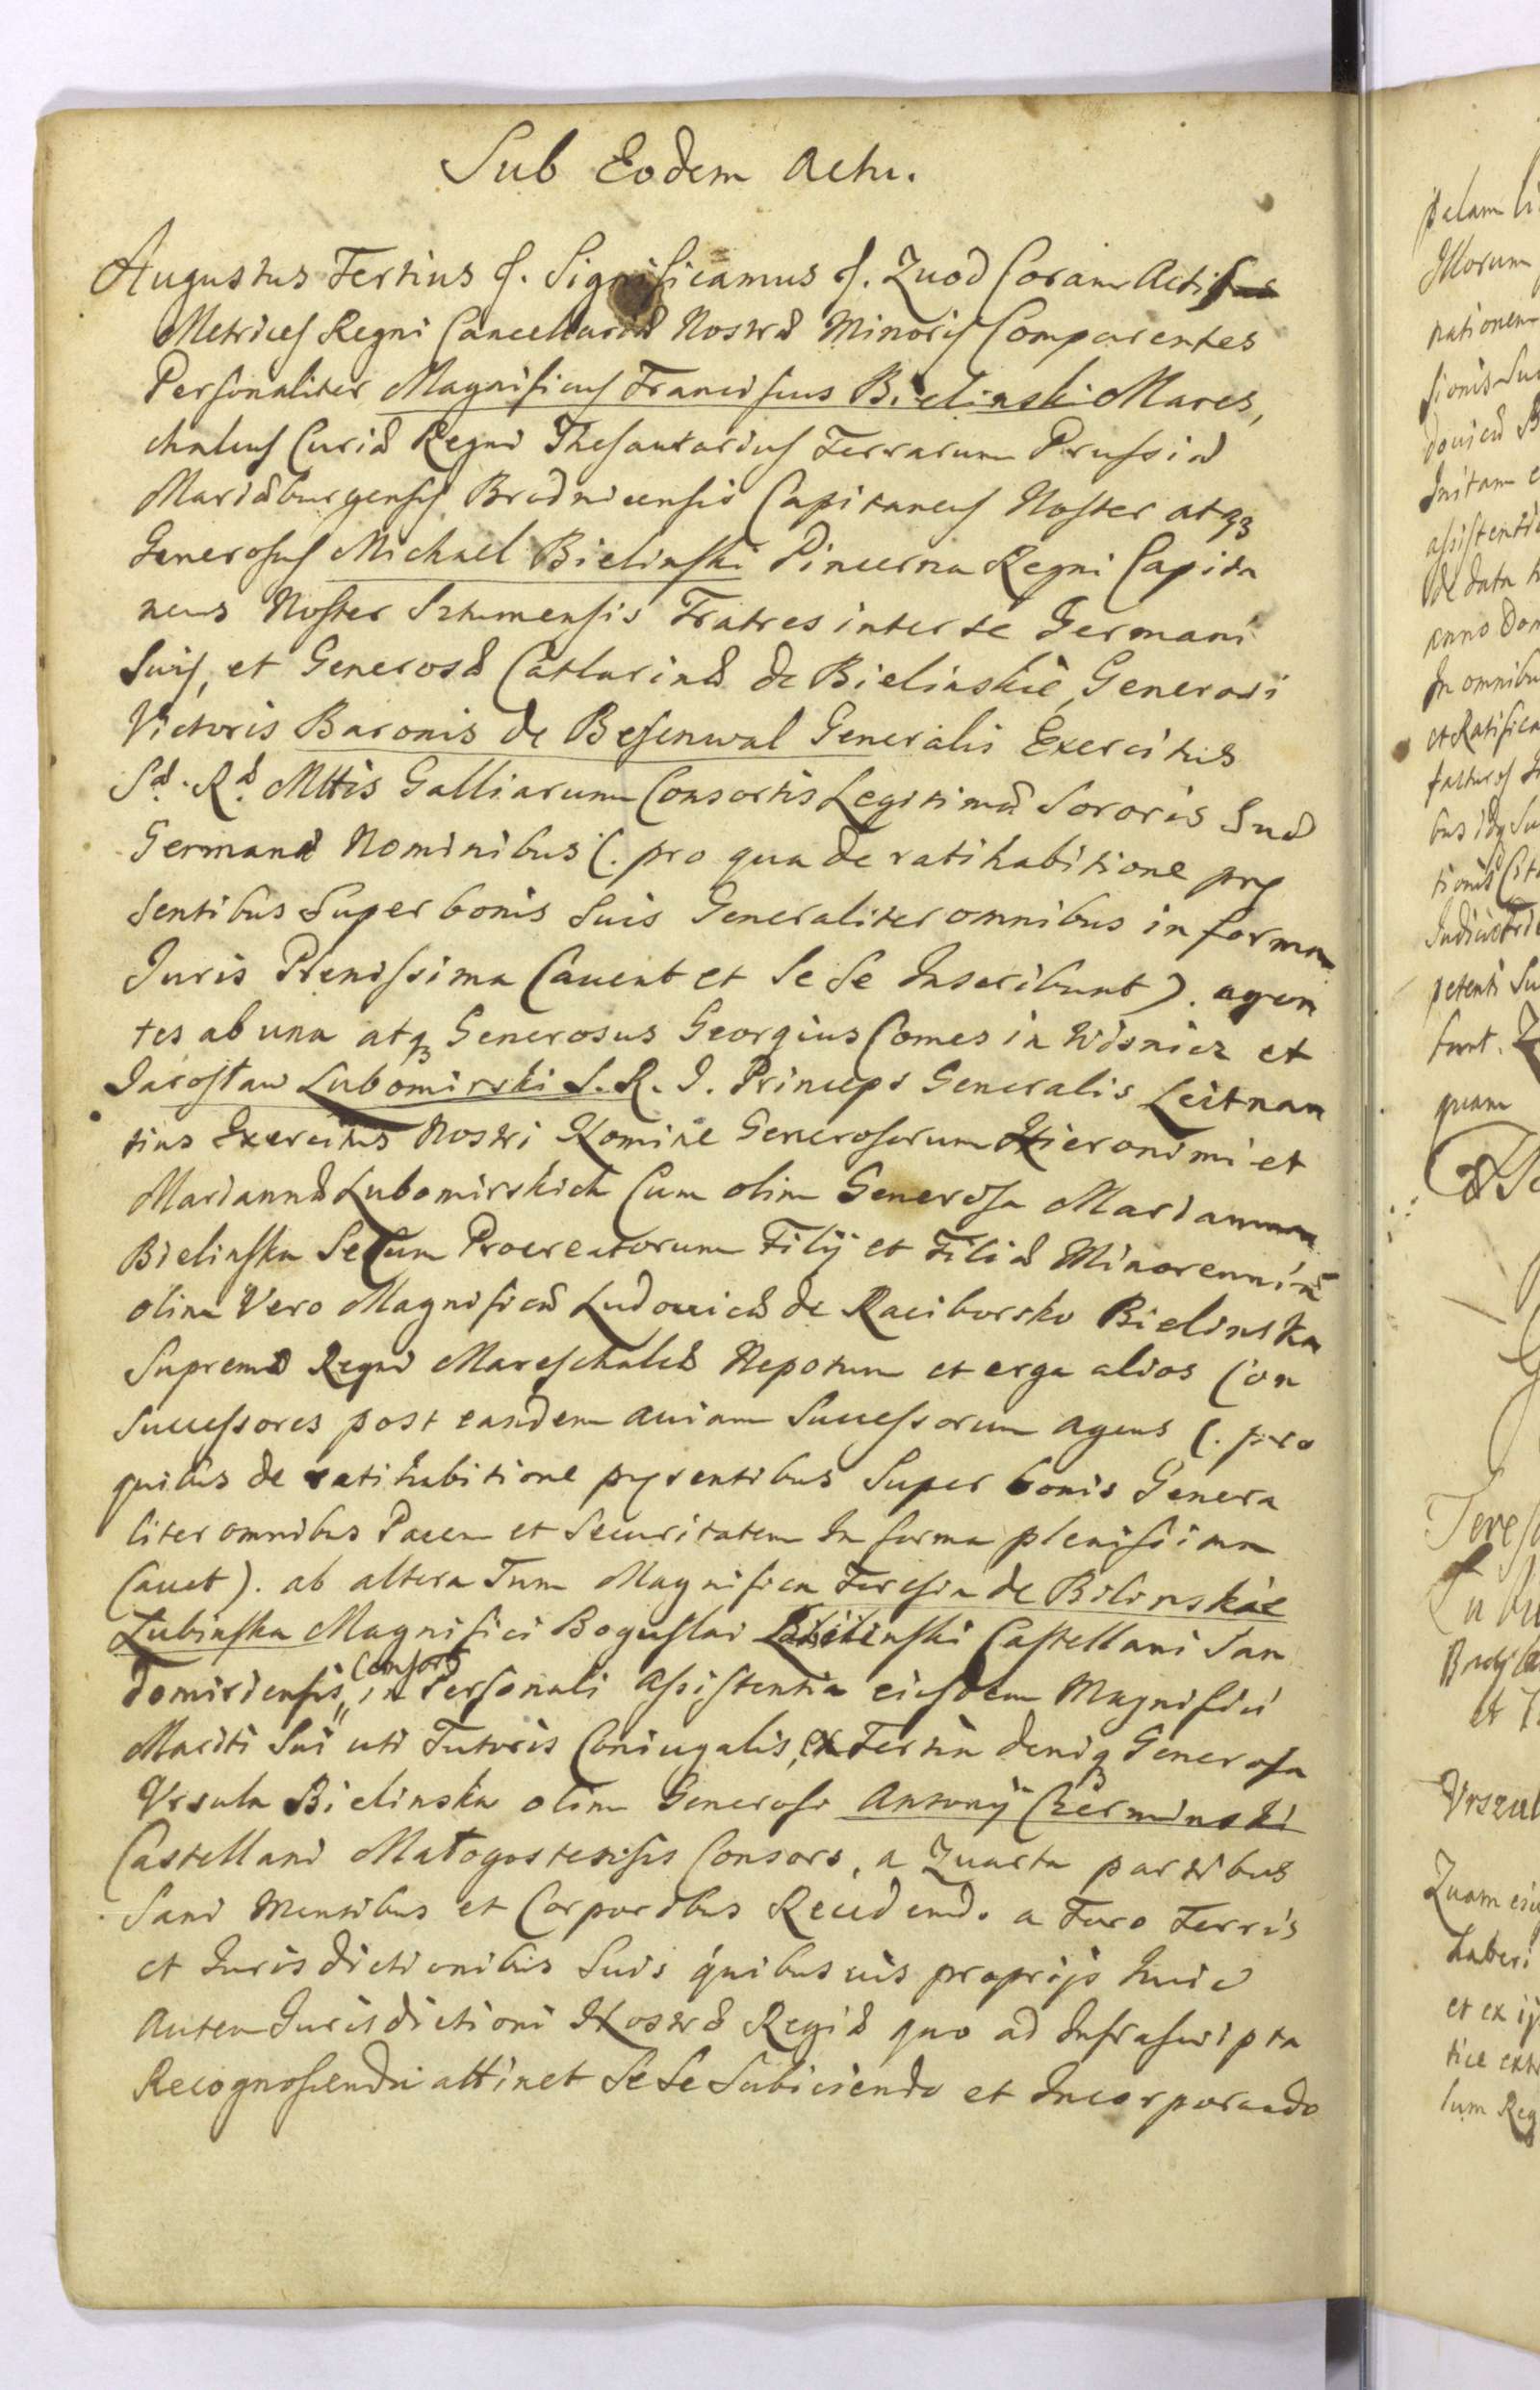 Sub Eodem Actu.
Augustus Tertius &. Significamus &. Quod Coram Actis
Metrices Regni Cancellariæ Nostræ Minoris Comparentes
Personaliter Magnificus Franciscus Bielinski Mares,
chalcus Curiæ Regni Thesaurarius Terrarum Prussiæ
Mariæburgensis Brodnicensis Capitaneus Noster atq3
Generosus Michael Bielinski Pincerna Regni Capita
neus Noster Sztumensis Fratres inter se Germani
Suis, et Generosæ Catharinæ de Bielinskie, Generosi
Victoris Baronis de Besenwal Generalis Exercitus
Sæ. Ræ. Mttis Galliarum Consortis Legitimæ Sororis Suæ
Germanæ Nominibus (. pro qua de ratihabitione præ
sentibus Super bonis Suis Generaliter omnibus in forma
Juris Plenissima Cavent et Se Se Inscribunt). agen
tes ab una atq3 Generosus Georgius Comes in Wisnicz et
Jarosław Lubomirski S. R. I. Princeps Generalis Leitnan
tius Exercitus Nostri Nomine Generosorum Hieronimi et
Mariannæ Lubomirskich Cum olim Generosa Marianna
Bielinska Secum Procreatorum Filij et Filiæ Minorennium
olim Vero Magnificæ Ludovicæ de Raciborsko Bielinska
Supremæ Regni Mareschalcæ Nepotum et erga alios Con
Successores post eandem aviam Successorum agens (. pro
quibus de ratihabitione præsentibus Super bonis Genera
liter omnibus Pacem et Securitatem In forma plenissima
Cavet). ab altera Tum Magnifica Teresia de Bilinskie
Łubinska Magnifici Boguslai Łubinski Castellani San
domiriensis Consors, in Personali Assistentia eiusdem Magnifici
Mariti Sui uti Tutoris Coniugalis, ex Tertia deniq3 Generosa
Vrsula Bielinska olim Generosi Antonij Czerminski
Castellani Małogostensis Consors, a Quarta partibus
Sani Mentibus et Corporibus Recedend. a Foro Terris
et Jurisdictionibus Suis quibusuis proprijs huic
Autem Jurisdictioni Nostræ Regiæ quo ad Infrascripta
Recognoscenda attinet Se Se Subiciendo et Incorporando